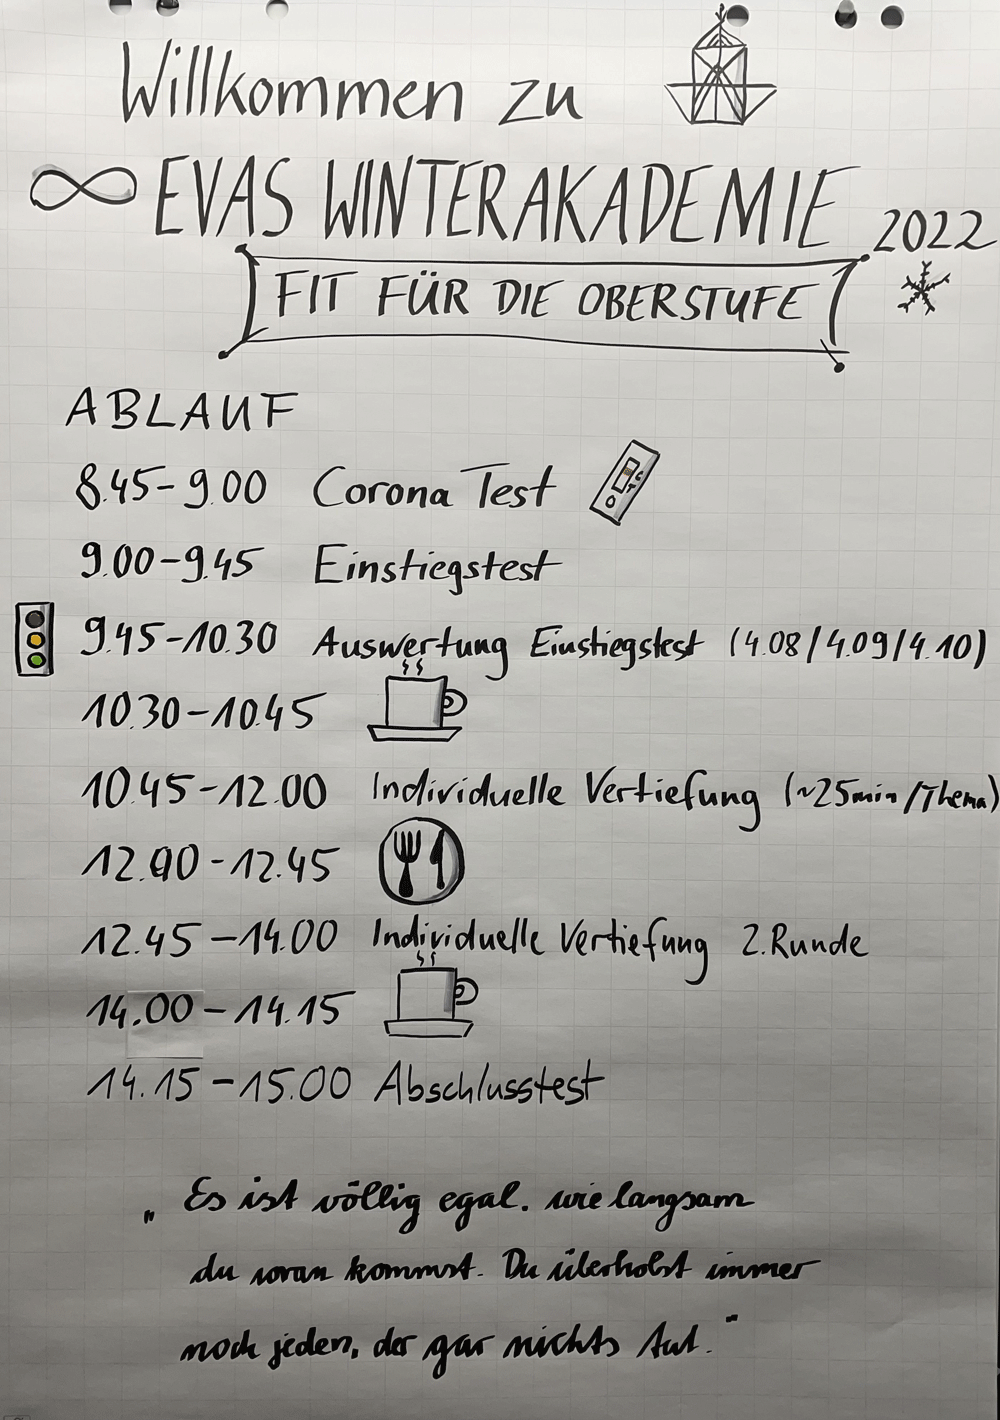 Willkommen zu
∞ EVAS WINTERAKADEMIE 2022
FIT FÜR DIE OBERSTUFE
ABLAUF
8.45-9.00 Corona Test
9.00-9.45 Einstiegstest
9.45-10.30 Auswertung Einstiegstest (4.08/4.09/4.10)
10.30-10.45
10.45-12.00 Individuelle Vertiefung (~25min/Thema)
12.00-12.45
12.45-14.00 Individuelle Vertiefung 2.Runde
14.00-14.15
14.15-15.00 Abschlusstest
„Es ist völlig egal. wie langsam
du voran kommst. Du überholst immer
noch jeden, der gar nichts tut."